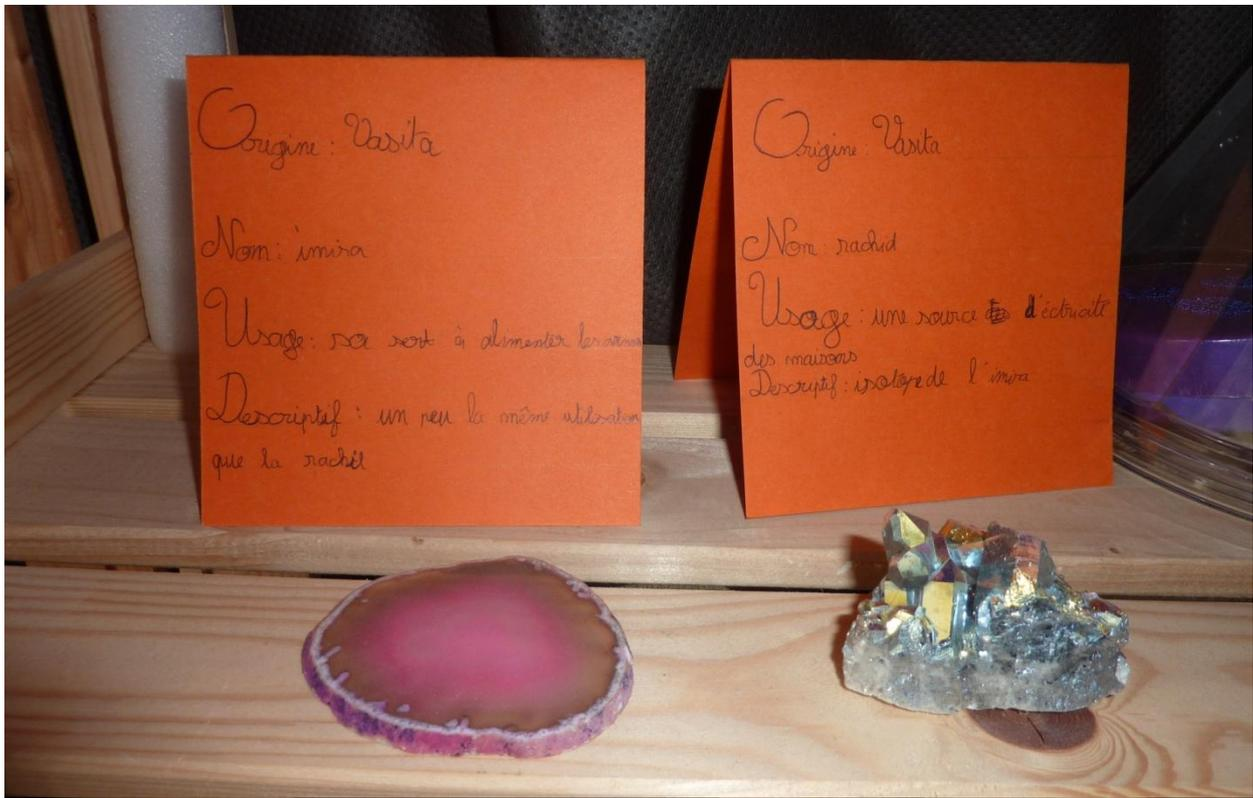 Origine : Vasita
Nom : imira
Usage : sa sert à alimenter les
Descriptif : un peu la même utilisation
que la rachid
Origine : Vasita
Nom : rachid
Usage : une source d'éctricité
des maisons
Descriptif : isotope de l'imira